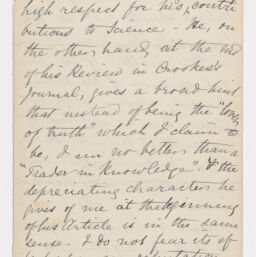 high respect for his contri
butions to Science - He, on
the other hand, at the end
of his Review in Crookes's
Journal, gives a broad hint
that instead of being the "lover
of truth" which I claim to
be, I am no better than a
"Trader in Knowledge". & the
depreciating character he
gives of me at the beginning
of his Article is in the same
sense - I do not fear its ef